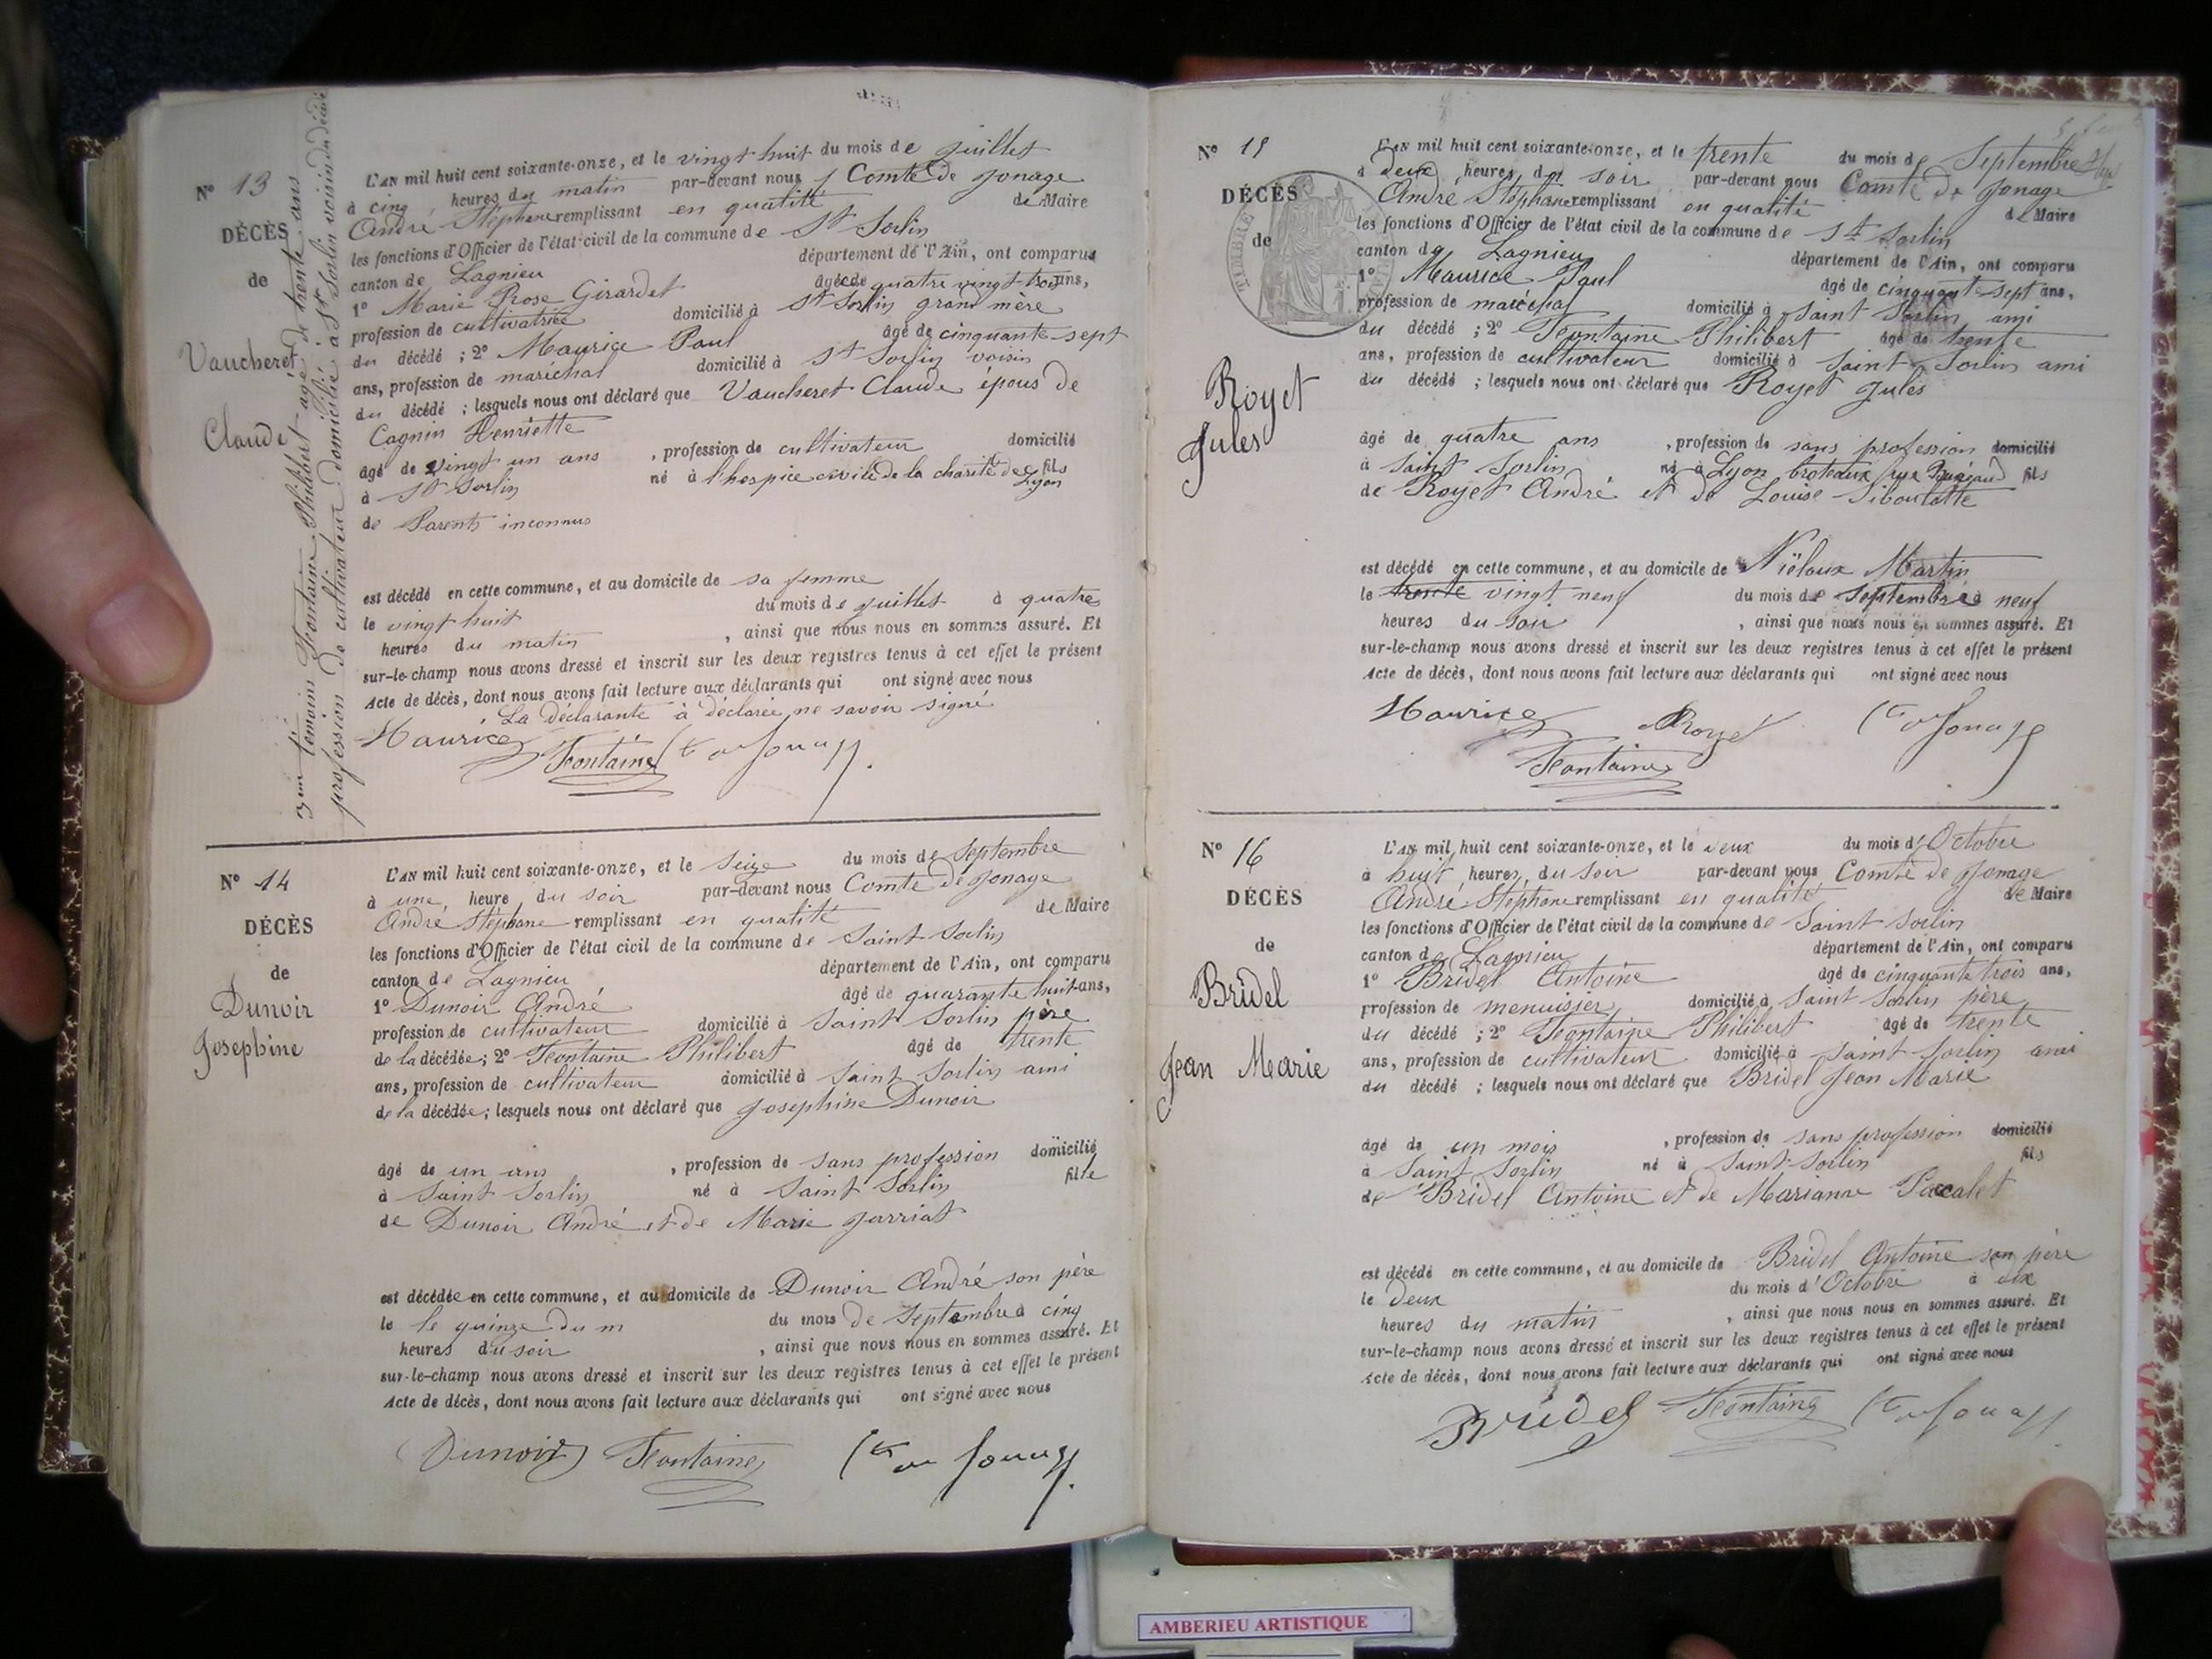 N° 13
DÉCÈS
de
Vaucheret
Claude
3me témoin Fontaine Philibert agé de trente ans
profession de cultivateur domicilié à St Sorlin voisin du décédé
L'AN mil huit cent soixante-onze, et le vingt huit du mois de juillet
à cinq heures du matin par-devant nous Comte de Jonage
André Stéphane remplissant en qualité de Maire
les fonctions d'Officier de l'état civil de la commune de St Sorlin
canton de Lagnieu département de l'Ain, ont comparu
1° Marie Rose Girardet âgée de quatre vingt trois ans,
profession de cultivatrice domicilié à St Sorlin grand mère
du décédé ; 2° Maurice Paul âgé de cinquante sept
ans, profession de maréchal domicilié à St Sorlin voisin
du décédé ; lesquels nous ont déclaré que Vaucheret Claude époux de
Cagnin Henriette
âgé de vingt un ans , profession de cultivateur domicilié
à St Sorlin né à l'hospice civile de la charité de Lyon fils
de Parents inconnus
est décédé en cette commune, et au domicile de sa femme
le vingt huit du mois de juillet à quatre
heures du matin , ainsi que nous nous en sommes assuré. Et
sur-le-champ nous avons dressé et inscrit sur les deux registres tenus à cet effet le présent
Acte de décès, dont nous avons fait lecture aux déclarants qui ont signé avec nous
La déclarante à déclarée ne savoir signé
Maurice Fontaine Cte de Jonage
N° 14
DÉCÈS
de
Dunoir
Josephine
L'AN mil huit cent soixante-onze, et le seize du mois de Septembre
à une heure du soir par-devant nous Comte de Jonage
André Stéphane remplissant en qualité de Maire
les fonctions d'Officier de l'état civil de la commune de Saint Sorlin
canton de Lagnieu département de l'Ain, ont comparu
1° Dunoir André âgé de quarante huit ans,
profession de cultivateur domicilié à Saint Sorlin père
de la décédée ; 2° Fontaine Philibert âgé de trente
ans, profession de cultivateur domicilié à Saint Sorlin ami
de la décédée ; lesquels nous ont déclaré que Josephine Dunoir
âgé de un ans , profession de sans profession domicilié
à Saint Sorlin né à Saint Sorlin fille
de Dunoir André et de Marie Jarriat
est décédée en cette commune, et au domicile de Dunoir André son père
le le quinze du m du mois de Septembre à cinq
heures du soir , ainsi que nous nous en sommes assuré. Et
sur-le-champ nous avons dressé et inscrit sur les deux registres tenus à cet effet le présent
Acte de décès, dont nous avons fait lecture aux déclarants qui ont signé avec nous
Dunoir Fontaine Cte de Jonage
N° 15
DÉCÈS
de
TIMBRE
Royet
Jules
L'AN mil huit cent soixante-onze, et le trente du mois de Septembre
à deux heures du soir par-devant nous Comte de Jonage
André Stéphane remplissant en qualité de Maire
les fonctions d'Officier de l'état civil de la commune de St Sorlin
canton de Lagnieu département de l'Ain, ont comparu
1° Maurice Paul âgé de cinquante sept ans,
profession de marechal domicilié à Saint Sorlin ami
du décédé ; 2° Fontaine Philibert âgé de trente
ans, profession de cultivateur domicilié à Saint Sorlin ami
du décédé ; lesquels nous ont déclaré que Royet Jules
âgé de quatre ans , profession de sans profession domicilié
à Saint Sorlin né à Lyon broteaux rue fils
de Royet André et de Louise Siboulotte
est décédé en cette commune, et au domicile de Niéloux Martin
le trente vingt neuf du mois de Septembre à neuf
heures du soir , ainsi que nous nous en sommes assuré. Et
sur-le-champ nous avons dressé et inscrit sur les deux registres tenus à cet effet le présent
Acte de décès, dont nous avons fait lecture aux déclarants qui ont signé avec nous
Maurice Royet Cte de Jonage
Fontaine
N° 16
DÉCÈS
de
Bridel
Jean Marie
L'AN mil huit cent soixante-onze, et le deux du mois d'Octobre
à huit heures du soir par-devant nous Comte de Jonage
André Stéphane remplissant en qualité de Maire
les fonctions d'Officier de l'état civil de la commune de Saint Sorlin
canton de Lagnieu département de l'Ain, ont comparu
1° Bridel Antoine âgé de cinquante trois ans,
profession de menuisier domicilié à Saint Sorlin père
du décédé ; 2° Fontaine Philibert âgé de trente
ans, profession de cultivateur domicilié à Saint Sorlin ami
du décédé ; lesquels nous ont déclaré que Bridel Jean Marie
âgé de un mois , profession de sans profession domicilié
à Saint Sorlin né à Saint-Sorlin fils
de Bridel Antoine et de Marianne Paccalet
est décédé en cette commune, et au domicile de Bridel Antoine son père
le deux du mois d'Octobre à dix
heures du matin , ainsi que nous nous en sommes assuré. Et
sur-le-champ nous avons dressé et inscrit sur les deux registres tenus à cet effet le présent
Acte de décès, dont nous avons fait lecture aux déclarants qui ont signé avec nous
Bridel Fontaine Cte de Jonage
AMBERIEU ARTISTIQUE